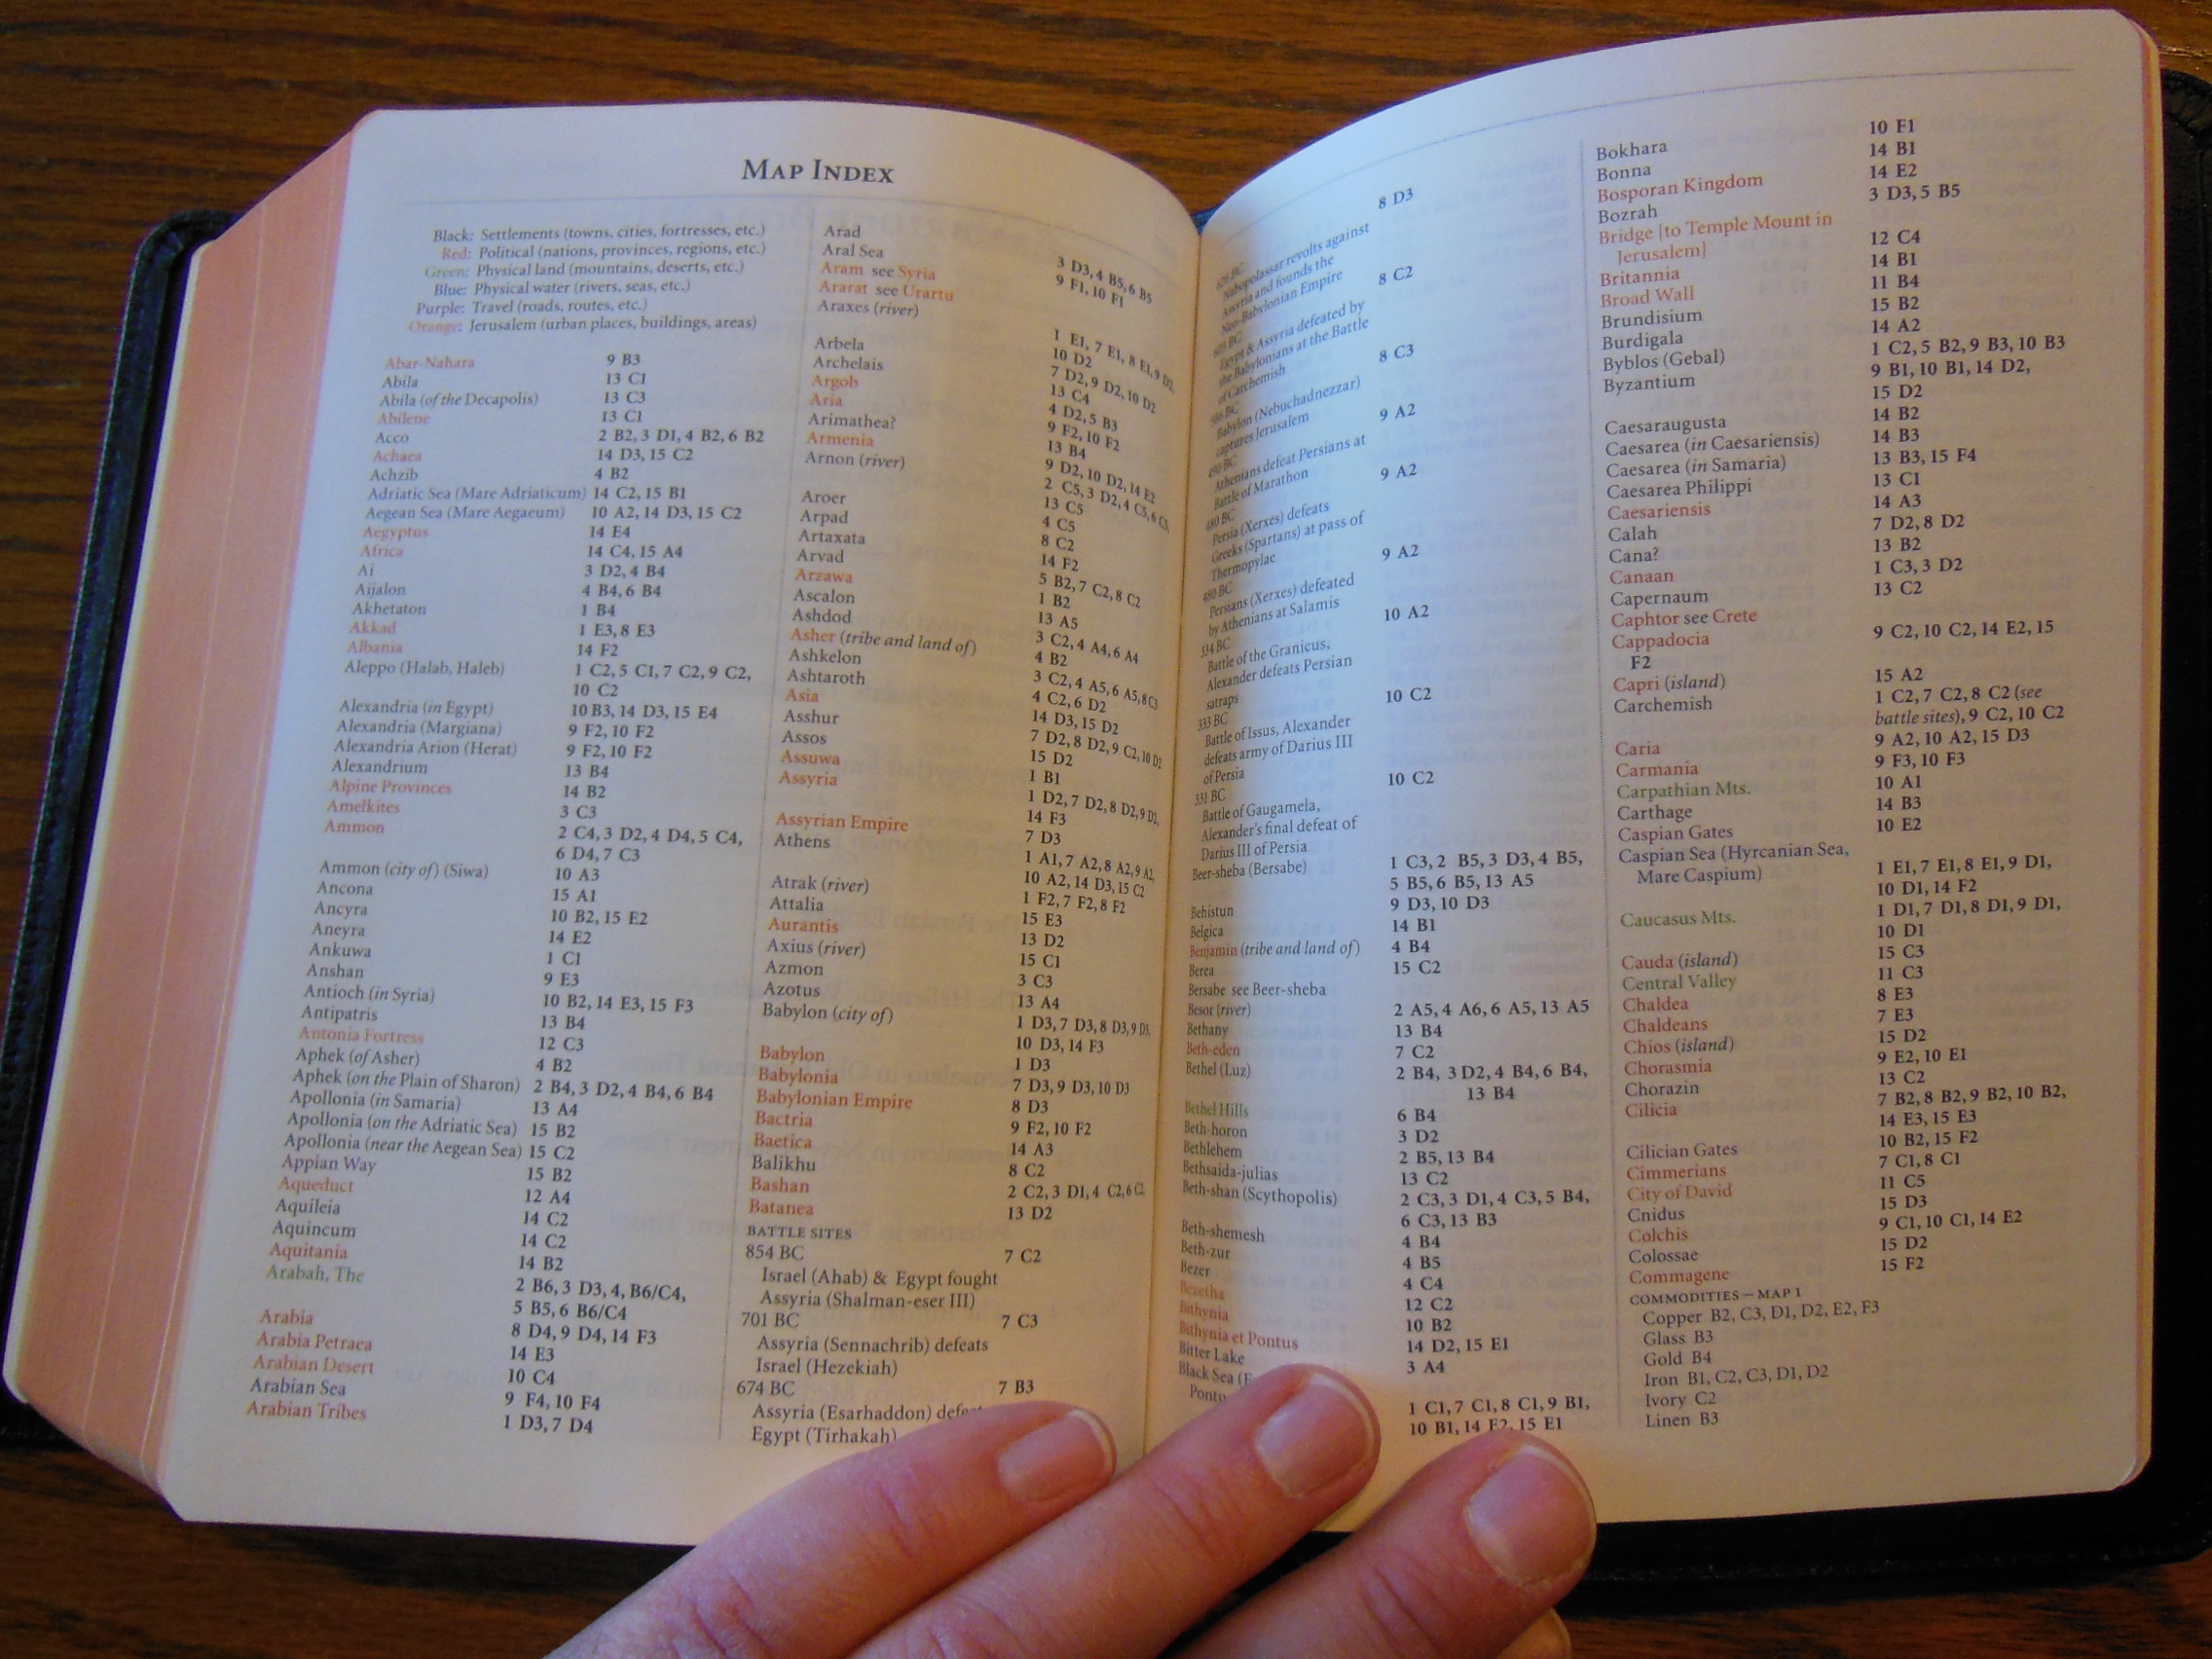 MAP INDEX
Black: Settlements (towns, cities, fortresses, etc.)
Red: Political (nations, provinces, regions, etc.)
Green: Physical land (mountains, deserts, etc.)
Blue: Physical water (rivers, seas, etc.)
Purple: Travel (roads, routes, etc.)
Orange: Jerusalem (urban places, buildings, areas)
Abar-Nahara 9 B3
Abila 13 C1
Abila (of the Decapolis) 13 C3
Abilene 13 C1
Acco 2 B2, 3 D1, 4 B2, 6 B2
Achaea 14 D3, 15 C2
Achzib 4 B2
Adriatic Sea (Mare Adriaticum) 14 C2, 15 B1
Aegean Sea (Mare Aegaeum) 10 A2, 14 D3, 15 C2
Aegyptus 14 E4
Africa 14 C4, 15 A4
Ai 3 D2, 4 B4
Aijalon 4 B4, 6 B4
Akhetaton 1 B4
Akkad 1 E3, 8 E3
Albania 14 F2
Aleppo (Halab, Haleb) 1 C2, 5 C1, 7 C2, 9 C2,
10 C2
Alexandria (in Egypt) 10 B3, 14 D3, 15 E4
Alexandria (Margiana) 9 F2, 10 F2
Alexandria Arion (Herat) 9 F2, 10 F2
Alexandrium 13 B4
Alpine Provinces 14 B2
Amelkites 3 C3
Ammon 2 C4, 3 D2, 4 D4, 5 C4,
6 D4, 7 C3
Ammon (city of) (Siwa) 10 A3
Ancona 15 A1
Ancyra 10 B2, 15 E2
Aneyra 14 E2
Ankuwa 1 C1
Anshan 9 E3
Antioch (in Syria) 10 B2, 14 E3, 15 F3
Antipatris 13 B4
Antonia Fortress 12 C3
Aphek (of Asher) 4 B2
Aphek (on the Plain of Sharon) 2 B4, 3 D2, 4 B4, 6 B4
Apollonia (in Samaria) 13 A4
Apollonia (on the Adriatic Sea) 15 B2
Apollonia (near the Aegean Sea) 15 C2
Appian Way 15 B2
Aqueduct 12 A4
Aquileia 14 C2
Aquincum 14 C2
Aquitania 14 B2
Arabah, The 2 B6, 3 D3, 4, B6/C4,
5 B5, 6 B6/C4
Arabia 8 D4, 9 D4, 14 F3
Arabia Petraea 14 E3
Arabian Desert 10 C4
Arabian Sea 9 F4, 10 F4
Arabian Tribes 1 D3, 7 D4
Arad 3 D3, 4 B5, 6 B5
Aral Sea 9 F1, 10 F1
Aram see Syria
Ararat see Urartu
Araxes (river) 1 E1, 7 E1, 8 E1, 9 D2,
10 D2
Arbela 7 D2, 9 D2, 10 D2
Archelais 13 C4
Argob 4 D2, 5 B3
Aria 9 F2, 10 F2
Arimathea? 13 B4
Armenia 9 D2, 10 D2, 14 E2
Arnon (river) 2 C5, 3 D2, 4 C5, 6 C5,
13 C5
Aroer 4 C5
Arpad 8 C2
Artaxata 14 F2
Arvad 5 B2, 7 C2, 8 C2
Arzawa 1 B2
Ascalon 13 A5
Ashdod 3 C2, 4 A4, 6 A4
Asher (tribe and land of) 4 B2
Ashkelon 3 C2, 4 A5, 6 A5, 8 C3
Ashtaroth 4 C2, 6 D2
Asia 14 D3, 15 D2
Asshur 7 D2, 8 D2, 9 C2, 10 D2
Assos 15 D2
Assuwa 1 B1
Assyria 1 D2, 7 D2, 8 D2, 9 D2,
14 F3
Assyrian Empire 7 D3
Athens 1 A1, 7 A2, 8 A2, 9 A2,
10 A2, 14 D3, 15 C2
Atrak (river) 1 F2, 7 F2, 8 F2
Attalia 15 E3
Aurantis 13 D2
Axius (river) 15 C1
Azmon 3 C3
Azotus 13 A4
Babylon (city of) 1 D3, 7 D3, 8 D3, 9 D3,
10 D3, 14 F3
Babylon 1 D3
Babylonia 7 D3, 9 D3, 10 D3
Babylonian Empire 8 D3
Bactria 9 F2, 10 F2
Baetica 14 A3
Balikhu 8 C2
Bashan 2 C2, 3 D1, 4 C2, 6 C2
Batanea 13 D2
BATTLE SITES
854 BC 7 C2
Israel (Ahab) & Egypt fought
Assyria (Shalman-eser III)
701 BC 7 C3
Assyria (Sennachrib) defeats
Israel (Hezekiah)
674 BC 7 B3
Assyria (Esarhaddon)
Egypt (Tirhakah)
626 BC 8 D3
Nabopolassar revolts against
Assyria and founds the
Neo-Babylonian Empire
605 BC 8 C2
Egypt & Assyria defeated by
the Babylonians at the Battle
of Carchemish
586 BC 8 C3
Babylon (Nebuchadnezzar)
captures Jerusalem
490 BC 9 A2
Athenians defeat Persians at
Battle of Marathon
480 BC 9 A2
Persia (Xerxes) defeats
Greeks (Spartans) at pass of
Thermopylae
480 BC 9 A2
Persians (Xerxes) defeated
by Athenians at Salamis
334 BC 10 A2
Battle of the Granicus,
Alexander defeats Persian
satraps
333 BC 10 C2
Battle of Issus, Alexander
defeats army of Darius III
of Persia
331 BC 10 C2
Battle of Gaugamela,
Alexander's final defeat of
Darius III of Persia
Beer-sheba (Bersabe) 1 C3, 2 B5, 3 D3, 4 B5,
5 B5, 6 B5, 13 A5
Behistun 9 D3, 10 D3
Belgica 14 B1
Benjamin (tribe and land of) 4 B4
Berea 15 C2
Bersabe see Beer-sheba
Besor (river) 2 A5, 4 A6, 6 A5, 13 A5
Bethany 13 B4
Beth-eden 7 C2
Bethel (Luz) 2 B4, 3 D2, 4 B4, 6 B4,
13 B4
Bethel Hills 6 B4
Beth-horon 3 D2
Bethlehem 2 B5, 13 B4
Bethsaida-julias 13 C2
Beth-shan (Scythopolis) 2 C3, 3 D1, 4 C3, 5 B4,
6 C3, 13 B3
Beth-shemesh 4 B4
Beth-zur 4 B5
Bezer 4 C4
Bezetha 12 C2
Bithynia 10 B2
Bithynia et Pontus 14 D2, 15 E1
Bitter Lake 3 A4
Black Sea
1 C1, 7 C1, 8 C1, 9 B1,
10 B1, 14 E2, 15 E1
Bokhara 10 F1
Bonna 14 B1
Bosporan Kingdom 14 E2
Bozrah 3 D3, 5 B5
Bridge [to Temple Mount in
Jerusalem] 12 C4
Britannia 14 B1
Broad Wall 11 B4
Brundisium 15 B2
Burdigala 14 A2
Byblos (Gebal) 1 C2, 5 B2, 9 B3, 10 B3
Byzantium 9 B1, 10 B1, 14 D2,
15 D2
Caesaraugusta 14 B2
Caesarea (in Caesariensis) 14 B3
Caesarea (in Samaria) 13 B3, 15 F4
Caesarea Philippi 13 C1
Caesariensis 14 A3
Calah 7 D2, 8 D2
Cana? 13 B2
Canaan 1 C3, 3 D2
Capernaum 13 C2
Caphtor see Crete
Cappadocia 9 C2, 10 C2, 14 E2, 15
F2
Capri (island) 15 A2
Carchemish 1 C2, 7 C2, 8 C2 (see
battle sites), 9 C2, 10 C2
Caria 9 A2, 10 A2, 15 D3
Carmania 9 F3, 10 F3
Carpathian Mts. 10 A1
Carthage 14 B3
Caspian Gates 10 E2
Caspian Sea (Hyrcanian Sea,
Mare Caspium) 1 E1, 7 E1, 8 E1, 9 D1,
10 D1, 14 F2
Caucasus Mts. 1 D1, 7 D1, 8 D1, 9 D1,
10 D1
Cauda (island) 15 C3
Central Valley 11 C3
Chaldea 8 E3
Chaldeans 7 E3
Chios (island) 15 D2
Chorasmia 9 E2, 10 E1
Chorazin 13 C2
Cilicia 7 B2, 8 B2, 9 B2, 10 B2,
14 E3, 15 E3
Cilician Gates 10 B2, 15 F2
Cimmerians 7 C1, 8 C1
City of David 11 C5
Cnidus 15 D3
Colchis 9 C1, 10 C1, 14 E2
Colossae 15 D2
Commagene 15 F2
COMMODITIES — MAP 1
Copper B2, C3, D1, D2, E2, F3
Glass B3
Gold B4
Iron B1, C2, C3, D1, D2
Ivory C2
Linen B3